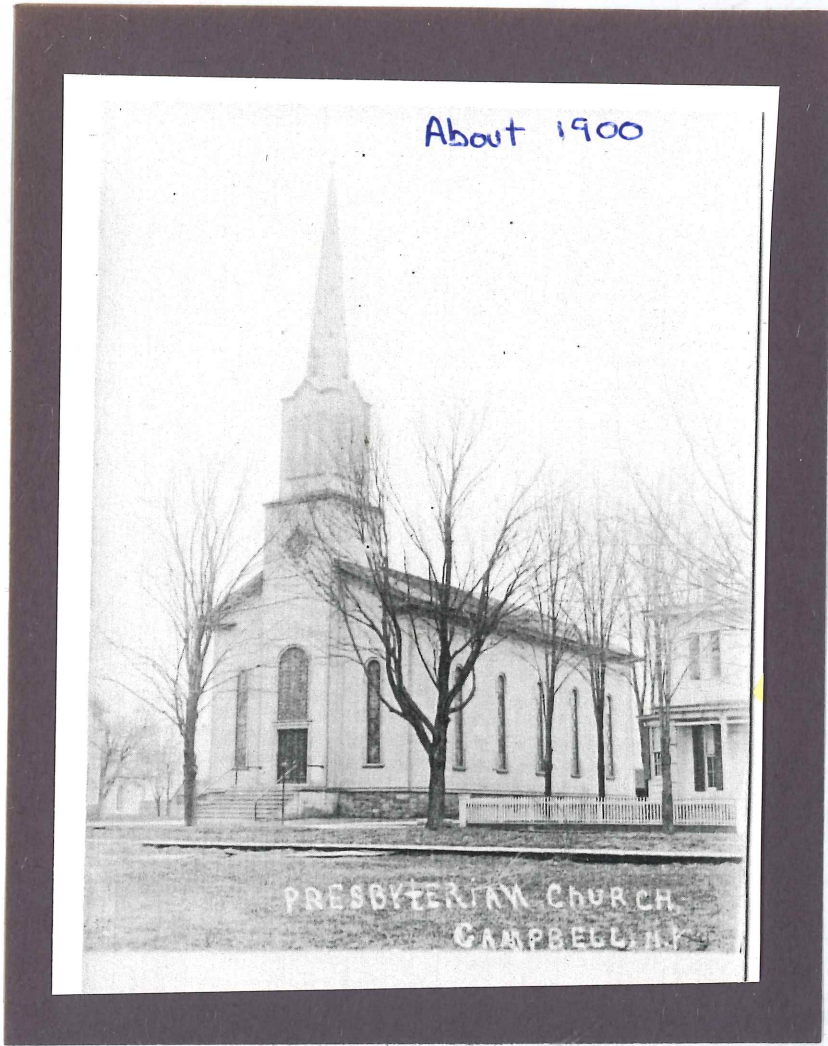 About 1900
PRESBYTERIAN ChURCH.
CAMPBELL, N.Y